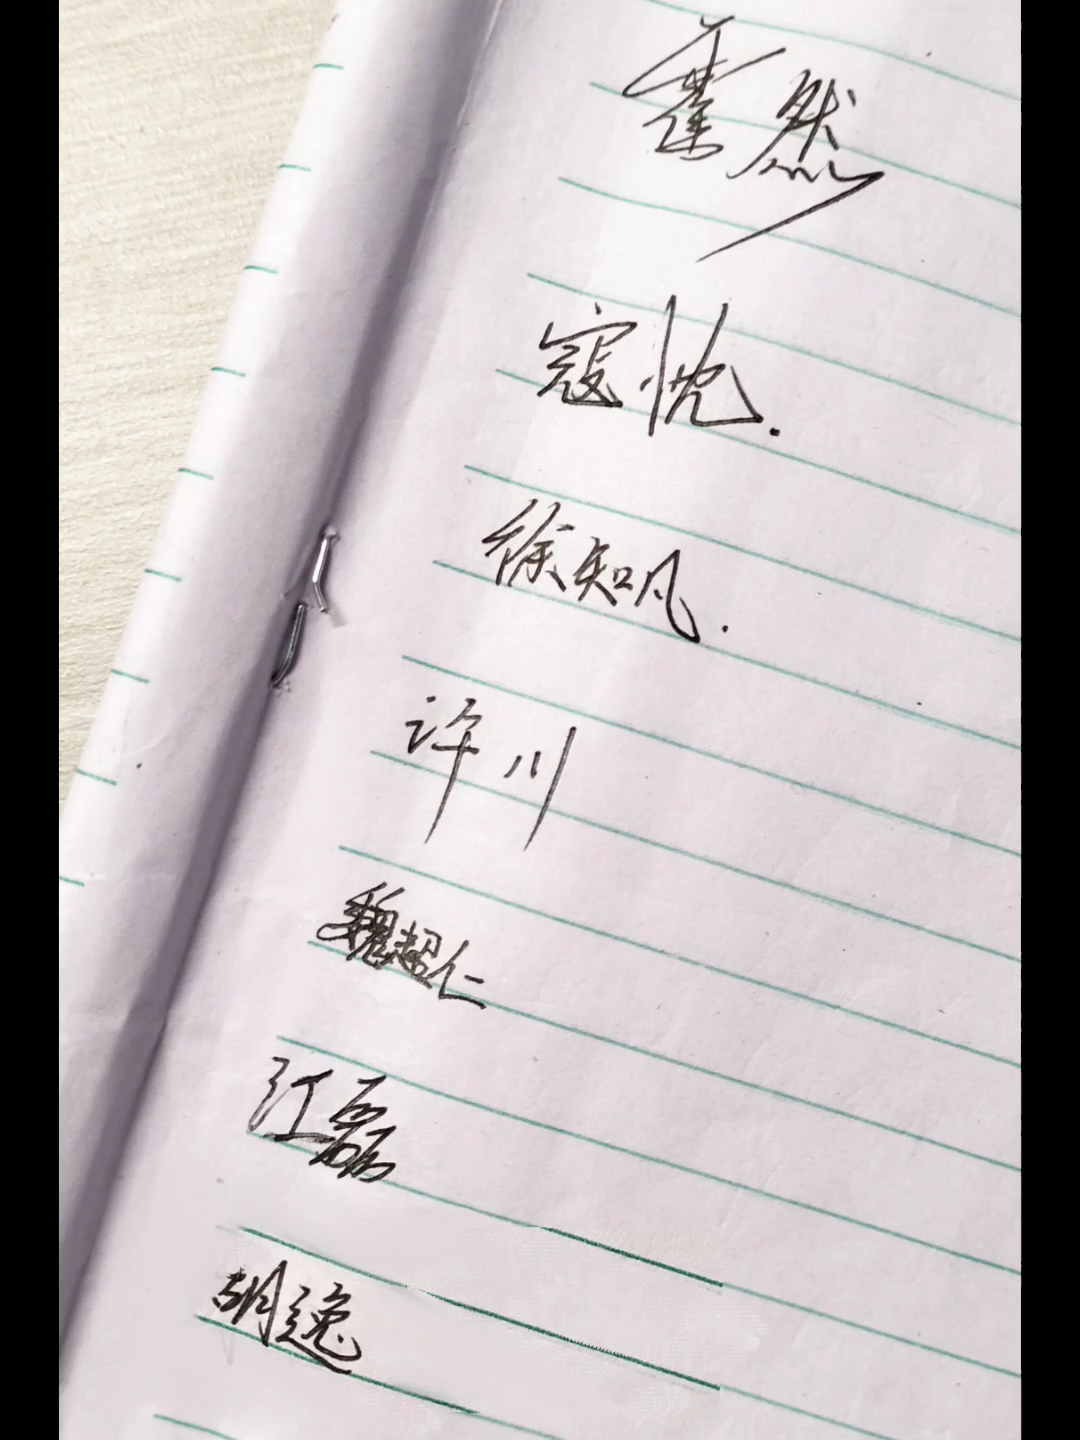 霍然
寇忱.
徐知凡.
许川
魏超仁
江磊
胡逸